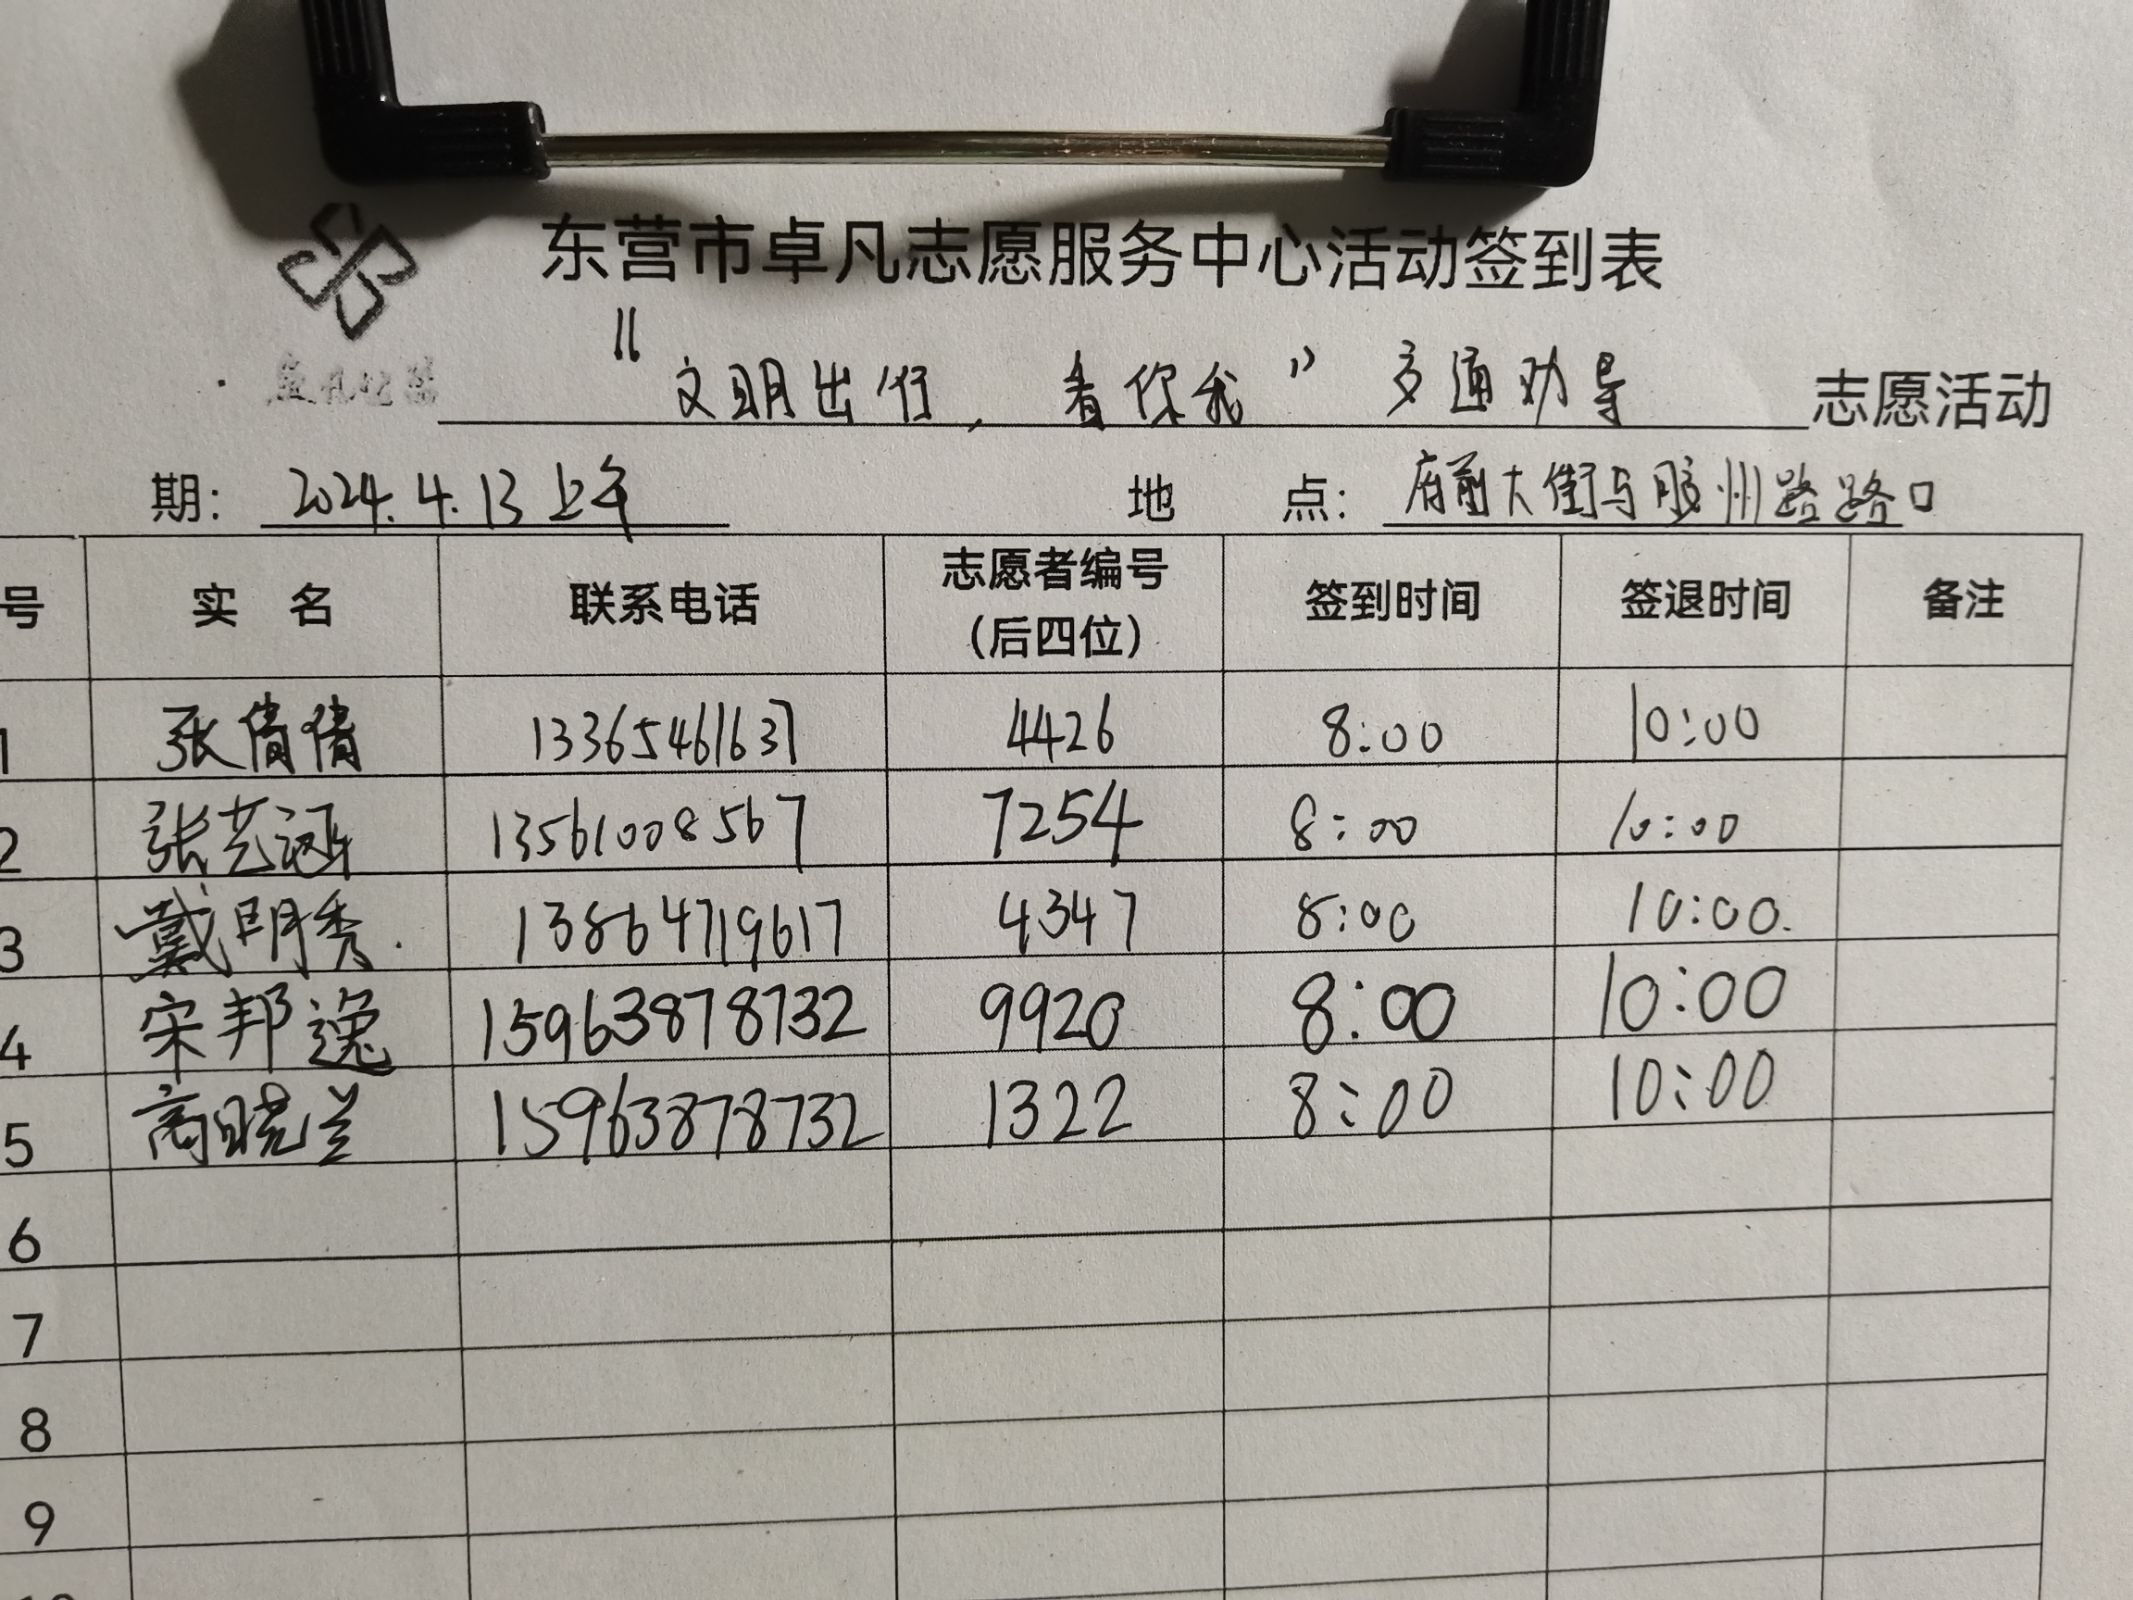 东营市卓凡志愿服务中心活动签到表
“文明出行，看你我”交通劝导 志愿活动
期： 2024.4.13上午 地 点： 府前大街与胶州路路口
号 实 名 联系电话 志愿者编号（后四位） 签到时间 签退时间 备注
1 张倩倩 13365461637 4426 8:00 10:00
2 张艺涵 13561008567 7254 8:00 10:00
3 戴明秀. 13864719617 4347 8:00 10:00.
4 宋邦逸 15963878732 9920 8:00 10:00
5 高晓兰 15963878732 1322 8:00 10:00
6
7
8
9